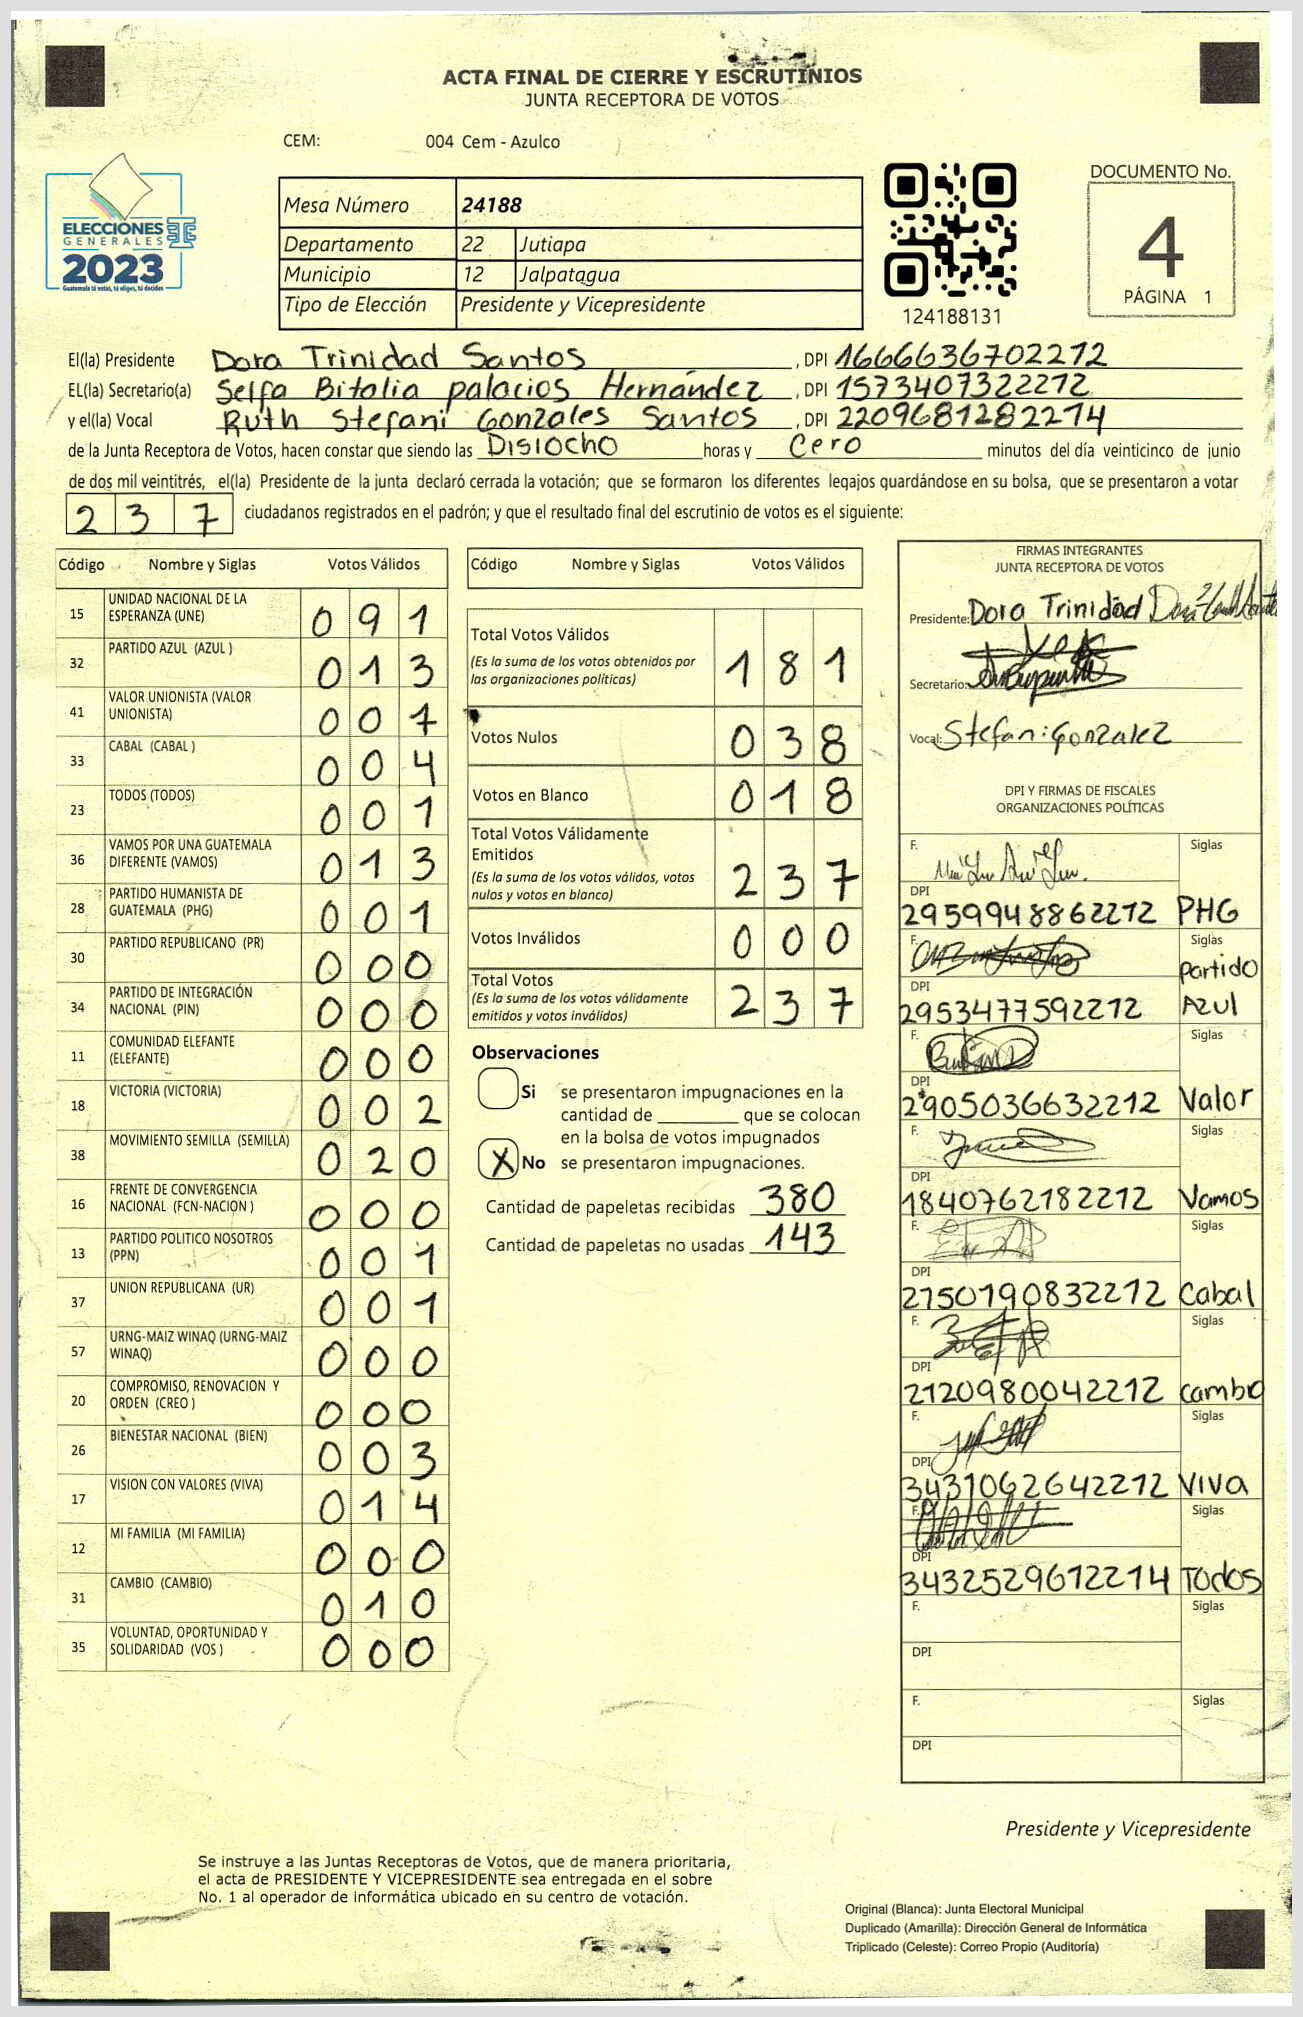 ACTA FINAL DE CIERRE Y ESCRUTINIOS
JUNTA RECEPTORA DE VOTOS
CEM: 004 Cem - Azulco
ELECCIONES
GENERALES
2023
Guatemala tú votas, tú eliges, tú decides
Mesa Número 24188
Departamento 22 Jutiapa
Municipio 12 Jalpatagua
Tipo de Elección Presidente y Vicepresidente
124188131
DOCUMENTO No.
4
PÁGINA 1
El(la) Presidente Dora Trinidad Santos, DPI 1666636702212
EL(la) Secretario(a) Selfa Bitalia palacios Hernández, DPI 1573407322212
y el(la) Vocal Ruth Stefani Gonzales Santos, DPI 2209681282214
de la Junta Receptora de Votos, hacen constar que siendo las Disiocho horas y Cero minutos del día veinticinco de junio
de dos mil veintitrés, el(la) Presidente de la junta declaró cerrada la votación; que se formaron los diferentes legajos guardándose en su bolsa, que se presentaron a votar
2 3 7 ciudadanos registrados en el padrón; y que el resultado final del escrutinio de votos es el siguiente:
Código Nombre y Siglas Votos Válidos
15 UNIDAD NACIONAL DE LA ESPERANZA (UNE) 0 9 1
32 PARTIDO AZUL (AZUL ) 0 1 3
41 VALOR UNIONISTA (VALOR UNIONISTA) 0 0 7
33 CABAL (CABAL ) 0 0 4
23 TODOS (TODOS) 0 0 1
36 VAMOS POR UNA GUATEMALA DIFERENTE (VAMOS) 0 1 3
28 PARTIDO HUMANISTA DE GUATEMALA (PHG) 0 0 1
30 PARTIDO REPUBLICANO (PR) 0 0 0
34 PARTIDO DE INTEGRACIÓN NACIONAL (PIN) 0 0 0
11 COMUNIDAD ELEFANTE (ELEFANTE) 0 0 0
18 VICTORIA (VICTORIA) 0 0 2
38 MOVIMIENTO SEMILLA (SEMILLA) 0 2 0
16 FRENTE DE CONVERGENCIA NACIONAL (FCN-NACION ) 0 0 0
13 PARTIDO POLITICO NOSOTROS (PPN) 0 0 1
37 UNION REPUBLICANA (UR) 0 0 1
57 URNG-MAIZ WINAQ (URNG-MAIZ WINAQ) 0 0 0
20 COMPROMISO, RENOVACION Y ORDEN (CREO ) 0 0 0
26 BIENESTAR NACIONAL (BIEN) 0 0 3
17 VISION CON VALORES (VIVA) 0 1 4
12 MI FAMILIA (MI FAMILIA) 0 0 0
31 CAMBIO (CAMBIO) 0 1 0
35 VOLUNTAD, OPORTUNIDAD Y SOLIDARIDAD (VOS ) 0 0 0
Código Nombre y Siglas Votos Válidos
Total Votos Válidos 1 8 1
(Es la suma de los votos obtenidos por
las organizaciones políticas)
Votos Nulos 0 3 8
Votos en Blanco 0 1 8
Total Votos Válidamente
Emitidos 2 3 7
(Es la suma de los votos válidos, votos
nulos y votos en blanco)
Votos Inválidos 0 0 0
Total Votos 2 3 7
(Es la suma de los votos válidamente
emitidos y votos inválidos)
Observaciones
Si se presentaron impugnaciones en la
cantidad de ________ que se colocan
en la bolsa de votos impugnados
X No se presentaron impugnaciones.
Cantidad de papeletas recibidas 380
Cantidad de papeletas no usadas 143
FIRMAS INTEGRANTES
JUNTA RECEPTORA DE VOTOS
Presidente: Dora Trinidad
Secretario:
Vocal: Stefani Gonzalez
DPI Y FIRMAS DE FISCALES
ORGANIZACIONES POLÍTICAS
F. Siglas
DPI
2959948862212 PHG
F. Siglas
DPI partido
2953477592212 Azul
F. Siglas
DPI
2905036632212 Valor
F. Siglas
DPI
1840762182212 Vamos
F. Siglas
DPI
2750190832212 Cabal
F. Siglas
DPI
2120980042212 cambio
F. Siglas
DPI
3431062642212 VIVA
F. Siglas
DPI
3432529612214 Todos
F. Siglas
DPI
F. Siglas
DPI
Presidente y Vicepresidente
Se instruye a las Juntas Receptoras de Votos, que de manera prioritaria,
el acta de PRESIDENTE Y VICEPRESIDENTE sea entregada en el sobre
No. 1 al operador de informática ubicado en su centro de votación.
Original (Blanca): Junta Electoral Municipal
Duplicado (Amarilla): Dirección General de Informática
Triplicado (Celeste): Correo Propio (Auditoría)